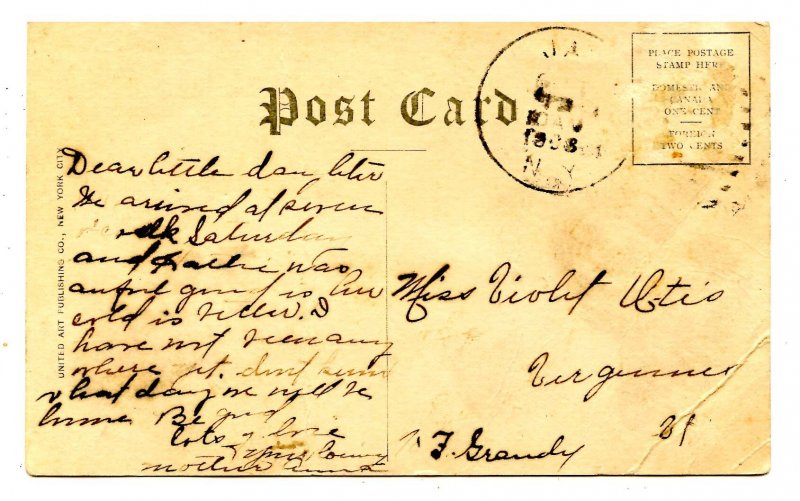 Post Card
PLACE POSTAGE
STAMP HERE
DOMESTIC AND
CANADA
ONE CENT
FOREIGN
TWO CENTS
JA
1908
N.Y.
UNITED ART PUBLISHING CO., NEW YORK CITY
Dear little daughter
We arrived at seven
Saturday
and was
awful good is her
cold is better. I
have not been any
where yet. dont know
what day we will be
home Be good
lots of love
your loving
mother
Miss Violet Otis
Vergennes
Vt
F. Grandy